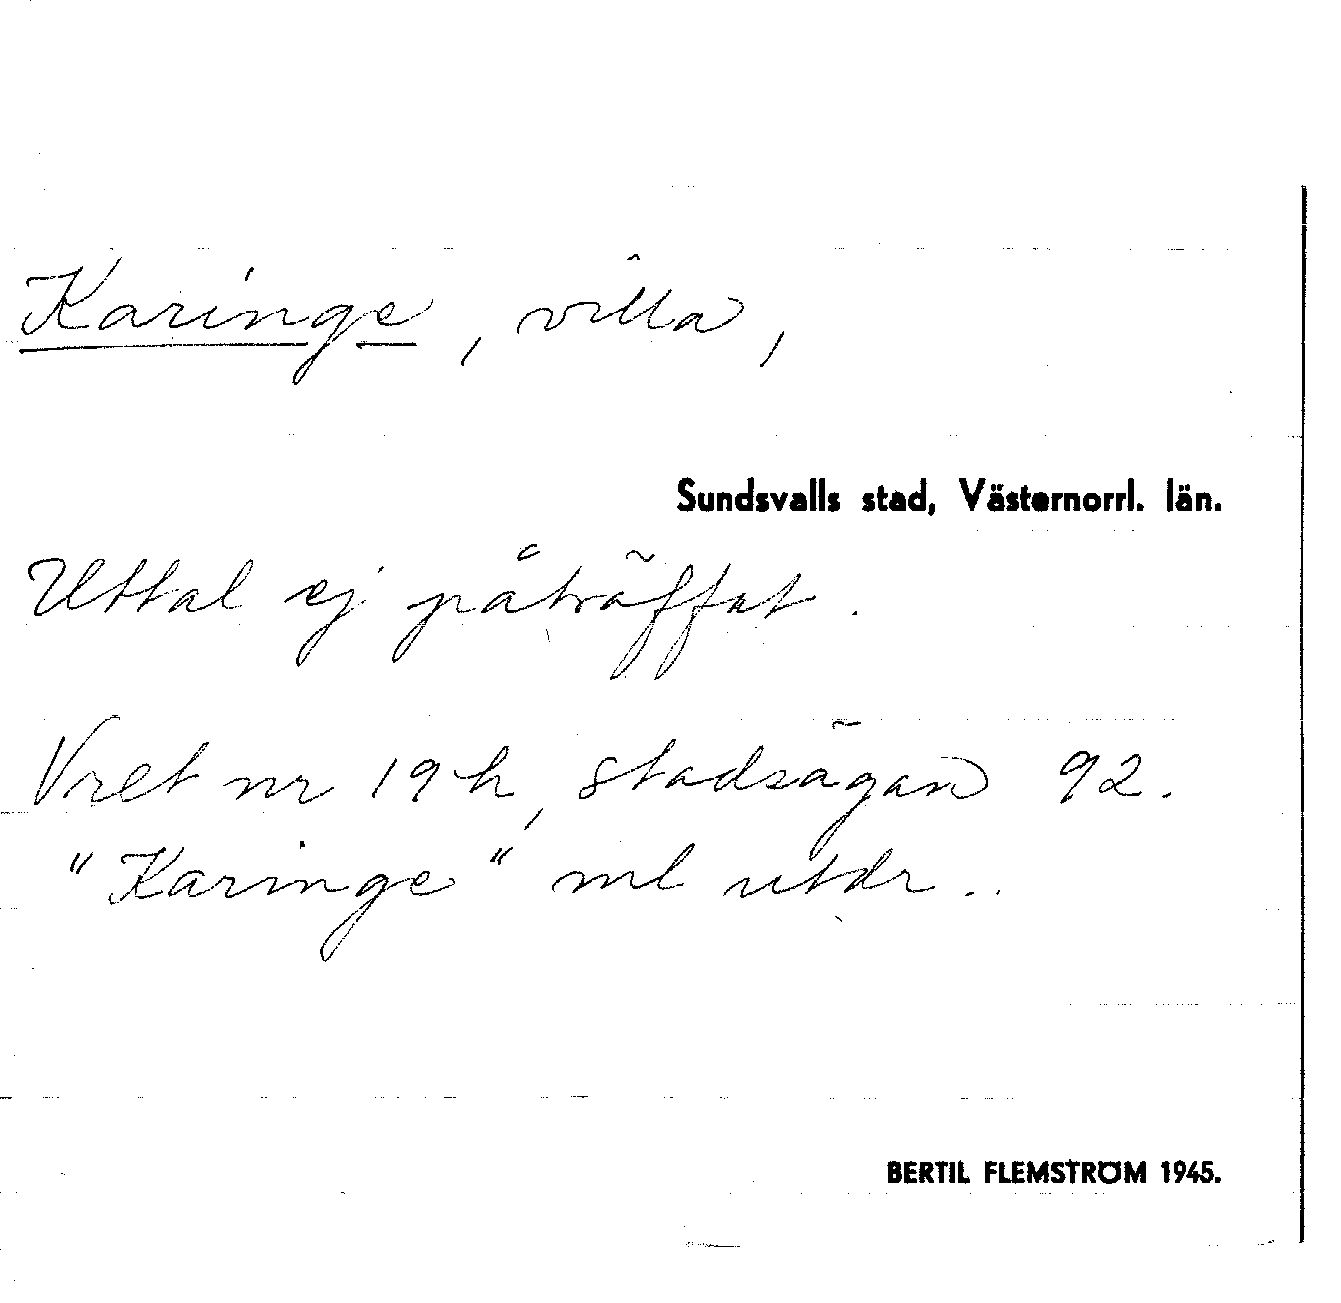 Karinge, villa,
Sundsvalls stad, Västernorrl. län.
Uttal ej påträffat.
Vret nr 19 h, stadsägan 92.
"Karinge" ml utdr..
BERTIL FLEMSTRÖM 1945.